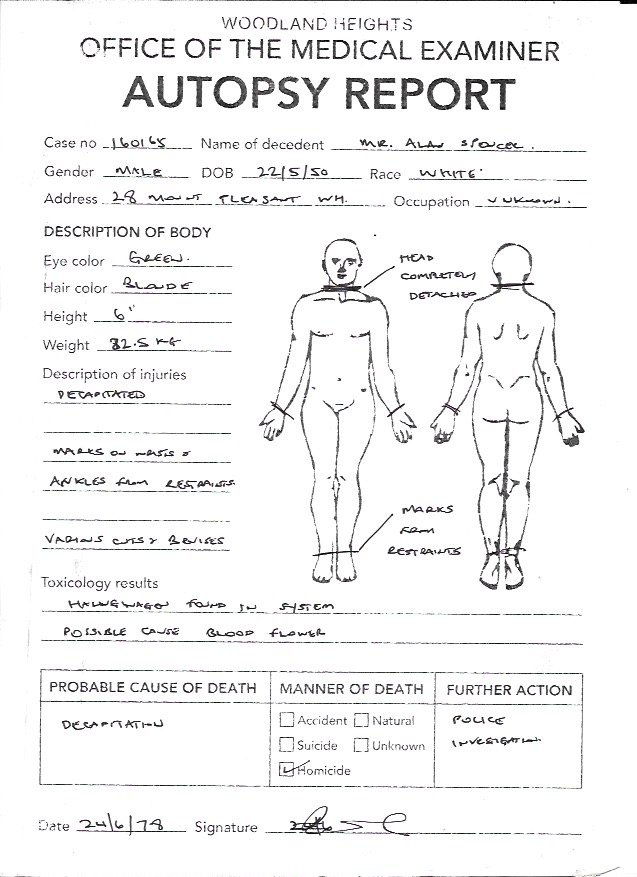 WOODLAND HEIGHTS
OFFICE OF THE MEDICAL EXAMINER
AUTOPSY REPORT
Case no 160165 Name of decedent MR. ALAN SPENCER.
Gender MALE DOB 22/5/50 Race WHITE
Address 28 MOUNT PLEASANT WH. Occupation UNKNOWN.
DESCRIPTION OF BODY
Eye color GREEN.
Hair color BLONDE
Height 6"
Weight 82.5 KG
HEAD
COMPLETELY
DETACHED
Description of injuries
DECAPITATED
MARKS ON WRISTS &
ANKLES FROM RESTRAINTS
VARIOUS CUTS & BRUISES
MARKS
FROM
RESTRAINTS
Toxicology results
FOUND IN SYSTEM
POSSIBLE CAUSE BLOOD FLOWER
PROBABLE CAUSE OF DEATH
DECAPITATION
MANNER OF DEATH
Accident Natural
Suicide Unknown
Homicide
FURTHER ACTION
POLICE
INVESTIGATION
Date 24/6/78 Signature